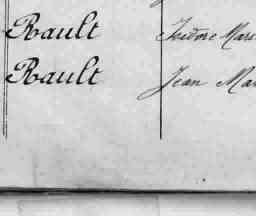 Rault Isidore Mari
Rault Jean Ma